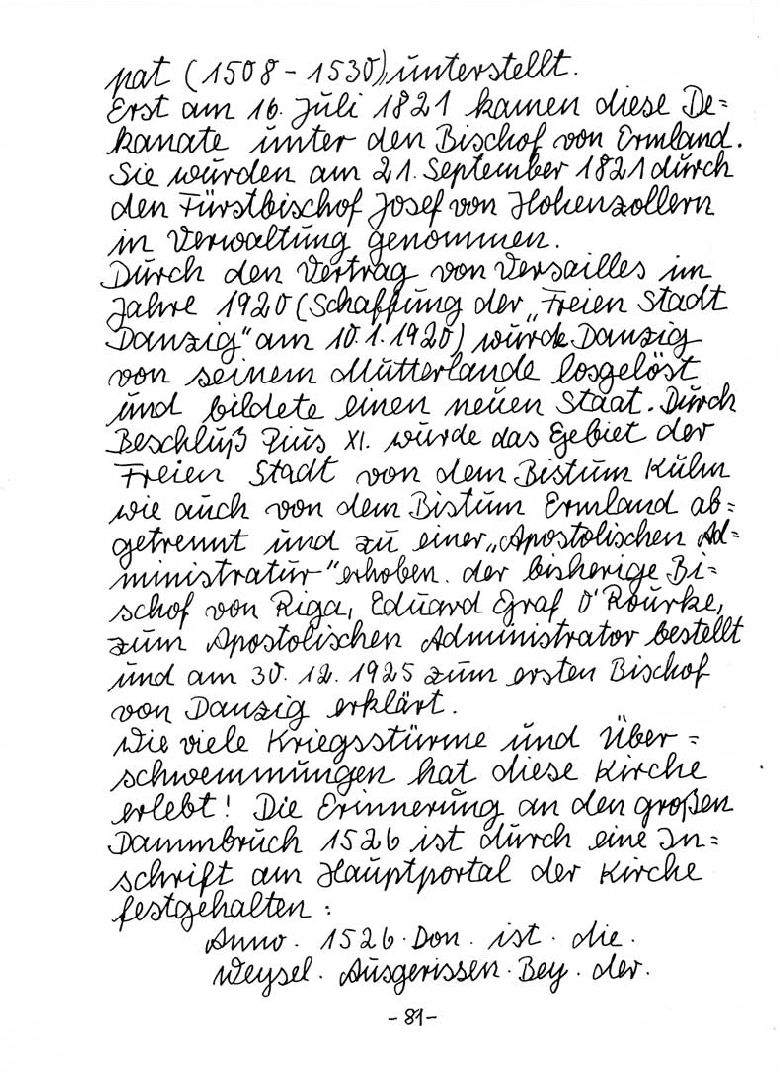 pat (1508 - 1530) unterstellt.
Erst am 16. Juli 1821 kamen diese De=
kanate unter den Bischof von Ermland.
Sie wurden am 21. September 1821 durch
den Fürstbischof Josef von Hohenzollern
in Verwaltung genommen.
Durch den Vertrag von Versailles im
Jahre 1920 (Schaffung der „Freien Stadt
Danzig" am 10.1.1920) wurde Danzig
von seinem Mutterlande losgelöst
und bildete einen neuen Staat. Durch
Beschluß Pius XI. wurde das Gebiet der
Freien Stadt von dem Bistum Kulm
wie auch von dem Bistum Ermland ab=
getrennt und zu einer „Apostolischen Ad=
ministratur" erhoben. der bisherige Bi=
schof von Riga, Eduard Graf O'Rourke,
zum Apostolischen Administrator bestellt
und am 30. 12. 1925 zum ersten Bischof
von Danzig erklärt.
Wie viele Kriegsstürme und Über=
schwemmungen hat diese Kirche
erlebt! Die Erinnerung an den großen
Dammbruch 1526 ist durch eine In=
schrift am Hauptportal der Kirche
festgehalten:
Anno. 1526. Don. ist. die.
Weysel. Ausgerissen. Bey. der.
-81-